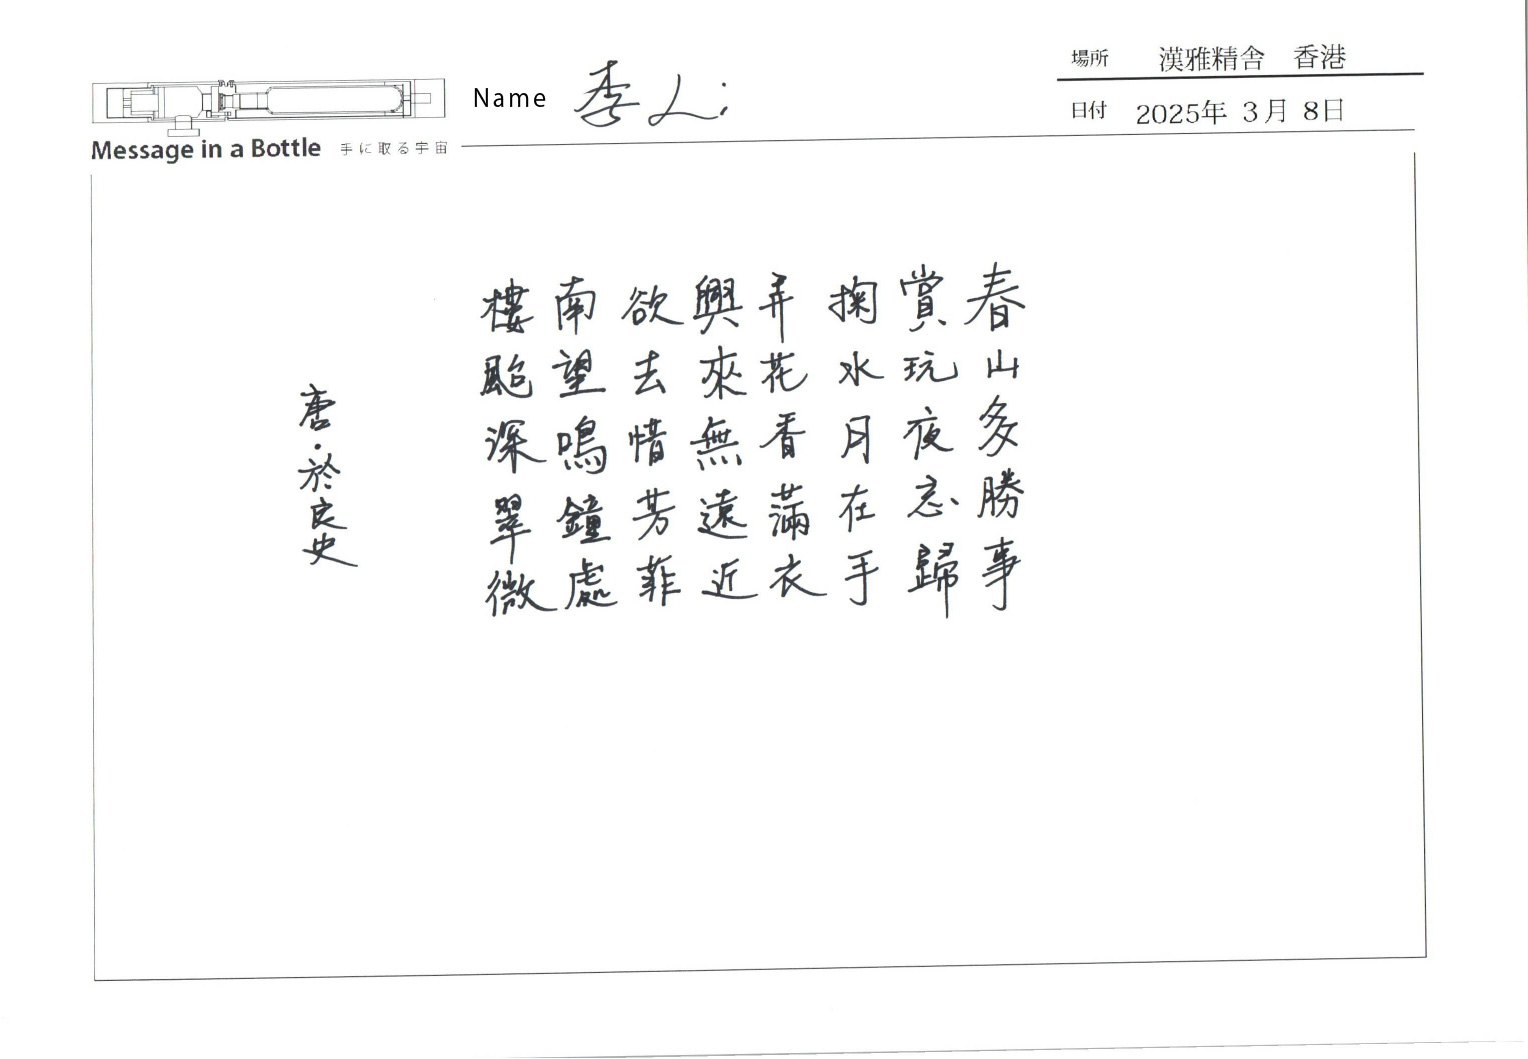 Message in a Bottle 手に取る宇宙
Name 李
場所 漢雅精舎 香港
日付 2025年 3月 8日
春山多勝事
賞玩夜忘歸
掬水月在手
弄花香滿衣
興來無遠近
欲去惜芳菲
南望鳴鐘處
樓颱深翠微
唐·於良史